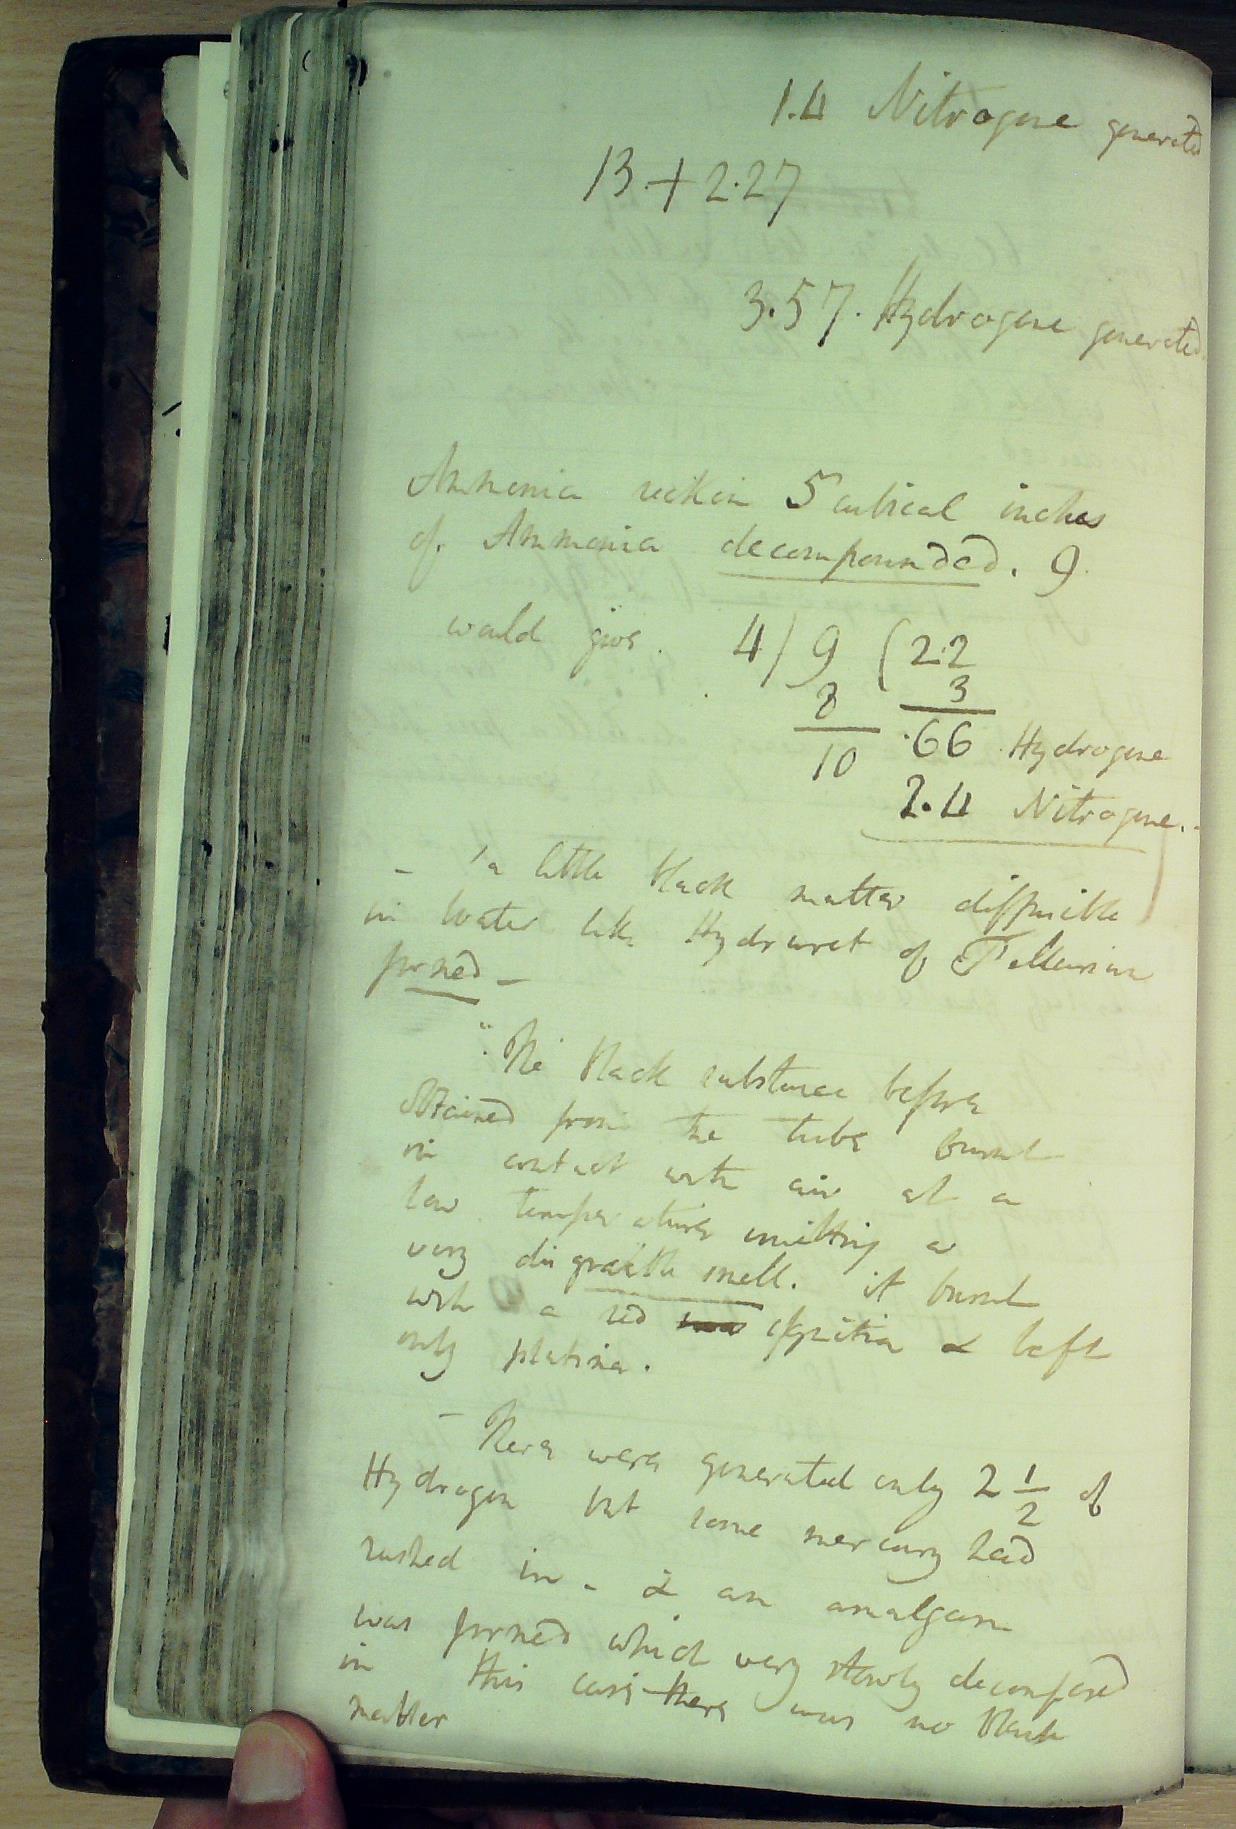 1.4 Nitrogene generated
13.+2.27
3.57. Hydrogene generated
Ammonia reckon 5 cubical inches
of. Ammonia decompounded. 9.
would give. 4) 9 (2.2
8 3
10 .66 Hydrogene
2.4 Nitrogene.-
- 'a little black matter diffusible
in Water like Hydruret of Tellurium
formed -
The black substance before
obtained from the tube burnt
in contact with air at a
low temperature emitting a
very disgreable smell. it burnt
with a red ignition & left
only platina.
- There were generated only 2 1/2 of
Hydrogen but some mercury had
rushed in - & an amalgam
was formed which very slowly decomposed
in this case there was no black
matter